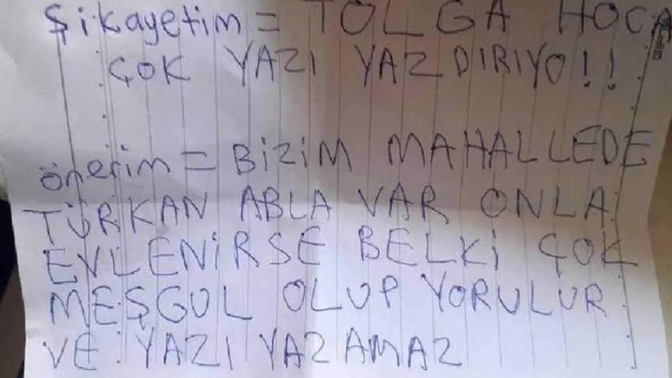 şikayetim = TOLGA HOCA
ÇOK YAZI YAZDIRIYO!!
önerim = BİZİM MAHALLEDE
TÜRKAN ABLA VAR ONLA
EVLENİRSE BELKİ ÇOK
MEŞGUL OLUP YORULUR
VE YAZI YAZAMAZ